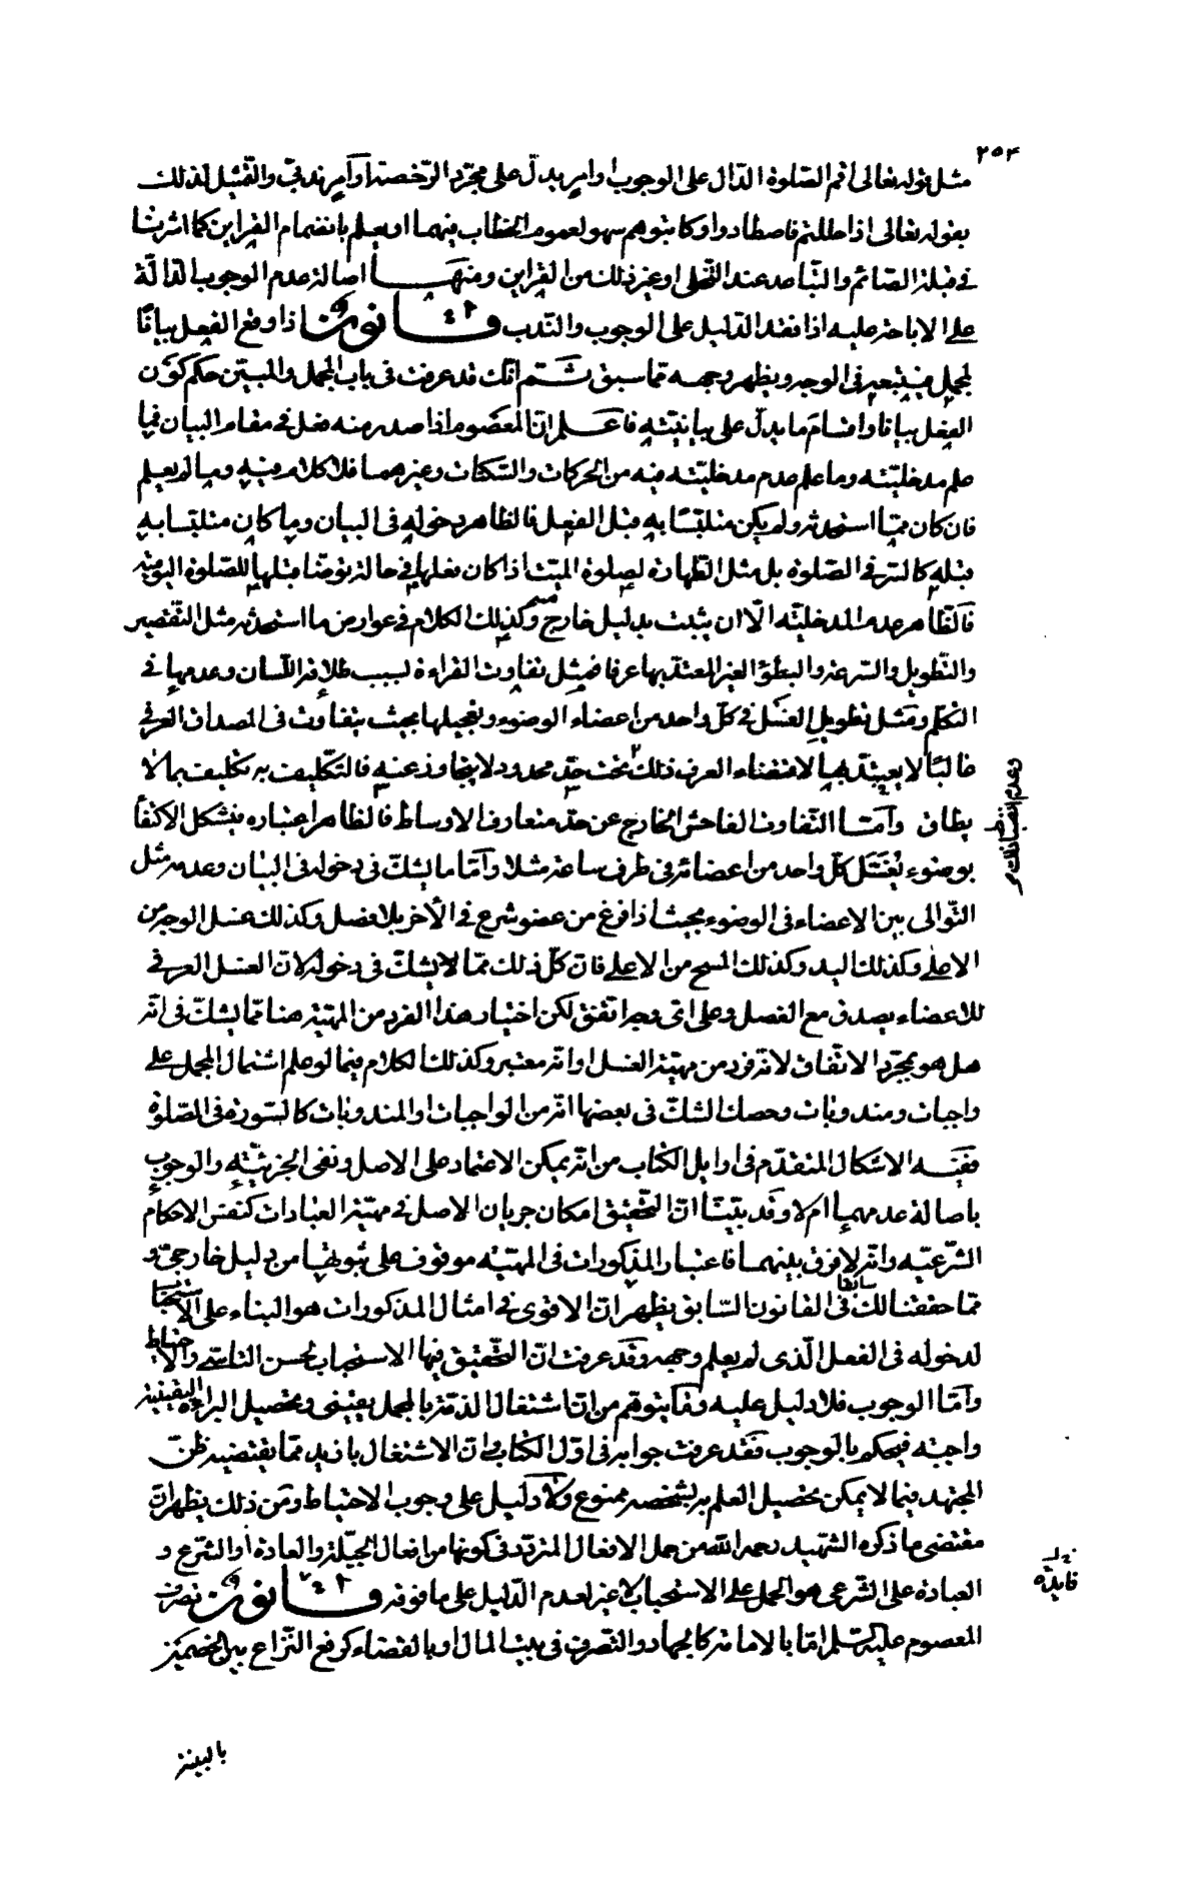 ٢٥٣
مثل قوله تعالى اقم الصّلوة الدّال على الوجوب او امر يدلّ على مجرّد الرّخصة او امر ندبىّ والتّمثيل لذلك
بقوله تعالى اذا حللتم فاصطادوا وكاتبوهم سهو لعموم الخطاب فيهما او يعلم بانضمام القراين كما اشرنا
فى قبلة الصّائم والتّباعد عند التّخلى او غير ذلك من القراين ومنها اصالة عدم الوجوب الدّالّة
على الاباحة عليه اذا فقد الدّليل على الوجوب والنّدب قانون اذا وقع الفعل بيانًا
لمجمل فيتبعه فى الوجه ويظهر وجهه ممّا سبق ثمّ انّك قد عرفت فى باب المجمل والمبيّن حكم كون
الفعل بيانا واقسام ما يدلّ على بيانيّته فاعلم انّ المعصوم اذا صدر منه فعل فى مقام البيان فما
علم مدخليّته وما علم عدم مدخليّته فيه من الحركات والسّكنات وغيرهما فلا كلام فيه وما لم يعلم
فان كان ممّا استحدثه ولم يكن متلبّسًا به قبل الفعل فالظاهر دخوله فى البيان وما كان متلبّسا به
قبله كالستر فى الصّلوة بل مثل الطّهارة لصلوة الميّت اذا كان فعلها فى حالة توضّأ قبلها للصّلوة اليوميّة
فالظّاهر عدم المدخليّة الّا ان يثبت بدليل خارج وكذلك الكلام فى عوارض ما استحدثه مثل التّقصير
والتّطويل والسّرعة والبطؤ الغير المعتدّ بها عرفا فمثل تفاوت القراءة لسبب طلاقة اللّسان وعدمها فى
التكلّم ومثل تطويل الغسل فى كلّ واحد من اعضاء الوضوء وتعجيلها بحيث يتفاوت فى المصداق العرفى
غالبًا لا يعتدّ بها لاقتضاء العرف ذلك تحت حدّ محدود لا يتجاوز عنه فالتكليف به تكليف بما لا
وعدم انضباط ذلك
يطاق وامّا التّفاوت الفاحش الخارج عن حدّ متعارف الاوساط فالظاهر اعتباره فيشكل الاكتفا
بوضوء يُغسَل كلّ واحد من اعضائه فى ظرف ساعة مثلا وامّا ما يشكّ فى دخوله فى البيان وعدمه مثل
التّوالى بين الاعضاء فى الوضوء بحيث اذا فرغ من عضو شرع فى الآخر بلا فصل وكذلك غسل الوجه من
الاعلى وكذلك اليد وكذلك المسح من الاعلى فانّ كلّ ذلك ممّا لا يشكّ فى دخوله لانّ الغسل العرفى
للاعضاء يصدق مع الفصل وعلى اى وجه اتّفق لكن اختيار هذا الفرد من المهيّة هنا ممّا يشكّ فى انّه
هل هو بمجرّد الاتّفاق لانّه فرد من مهيّة الغسل او انّه معتبر وكذلك الكلام فيما لو علم اشتمال المجمل على
واجبات ومندوبات وحصل الشكّ فى بعضها انّه من الواجبات او المندوبات كالسّورة فى الصّلوة
ففيه الاشكال المتقدّم فى اوايل الكتاب من انّه يمكن الاعتماد على الاصل ونفى الجزئيّة والوجوب
باصالة عدمهما ام لا وقد بيّنّا انّ التّحقيق امكان جريان الاصل فى مهيّة العبادات كنفس الاحكام
الشّرعيّة وانّه لا فرق بينهما فاعتبار المذكورات فى المهيّة موقوف على ثبوتها من دليل خارجىّ و
ممّا حققنا لك سابقا فى القانون السّابق يظهر انّ الاقوى فى امثال المذكورات هو البناء على الاستحباب
لدخوله فى الفعل الّذى لم يعلم وجهه وقد عرفت انّ التّحقيق فيها الاستحباب لحسن التاسّى والاحتياط
وامّا الوجوب فلا دليل عليه وما يتوهّم من انّ اشتغال الذّمّة بالمجمل يقينى وتحصيل البراءة اليقينيّة
واجبة فيحكم بالوجوب فقد عرفت جوابه فى اوّل الكتاب من انّ الاشتغال بازيد ممّا يقتضيه ظنّ
المجتهد فيما لا يمكن تحصيل العلم به لشخصه ممنوع ولا دليل على وجوب الاحتياط ومن ذلك يظهر انّ
مقتضى ما ذكره الشّهيد رحمه الله من حمل الافعال المتردّد فى كونها من افعال الجبلّة والعادة او الشّرع و
العبادة على الشّرعى هو الحمل على الاستحباب لا غير لعدم الدّليل على ما فوقه قانون تصرّف
فايدة
المعصوم عليه السّلم امّا بالامامة كالجهاد والتّصرف فى بيت المال او بالقضاء كرفع النّزاع بين الخصمين
بالبينة